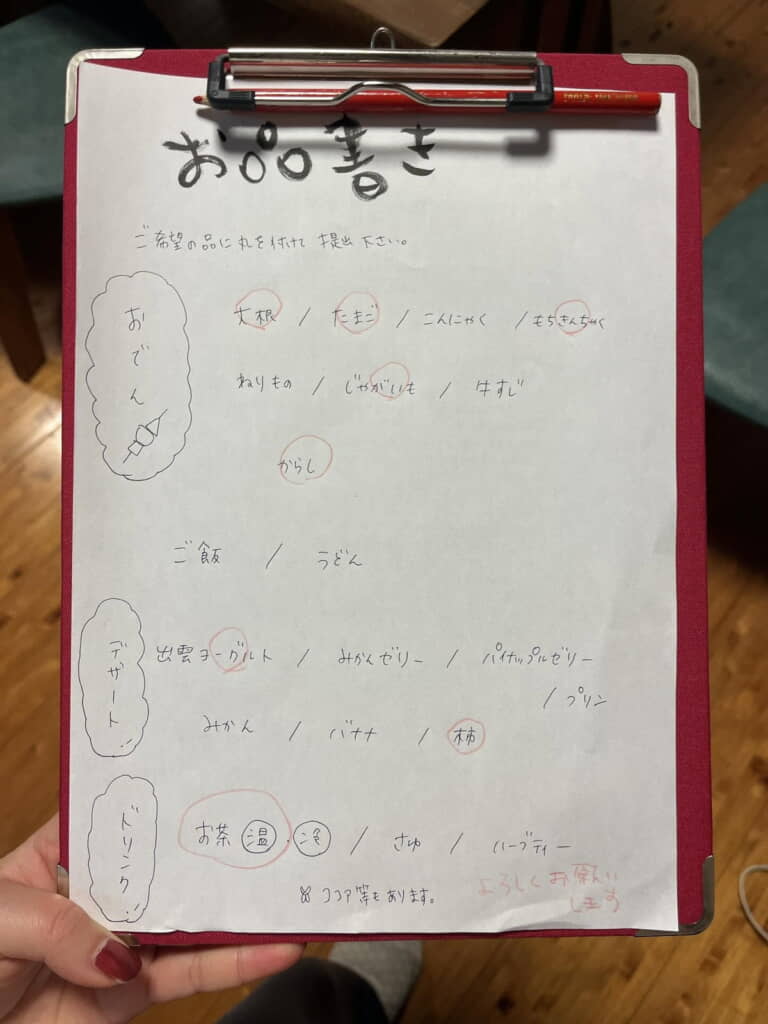 お品書き
ご希望の品に丸を付けて提出下さい。
おでん
大根 / たまご / こんにゃく / もちきんちゃく
ねりもの / じゃがいも / 牛すじ
からし
ご飯 / うどん
デザート
出雲ヨーグルト / みかんゼリー / パイナップルゼリー
/ プリン
みかん / バナナ / 柿
ドリンク
お茶 温・冷 / さゆ / ハーブティー
※ ココア等もあります。
よろしくお願い
します